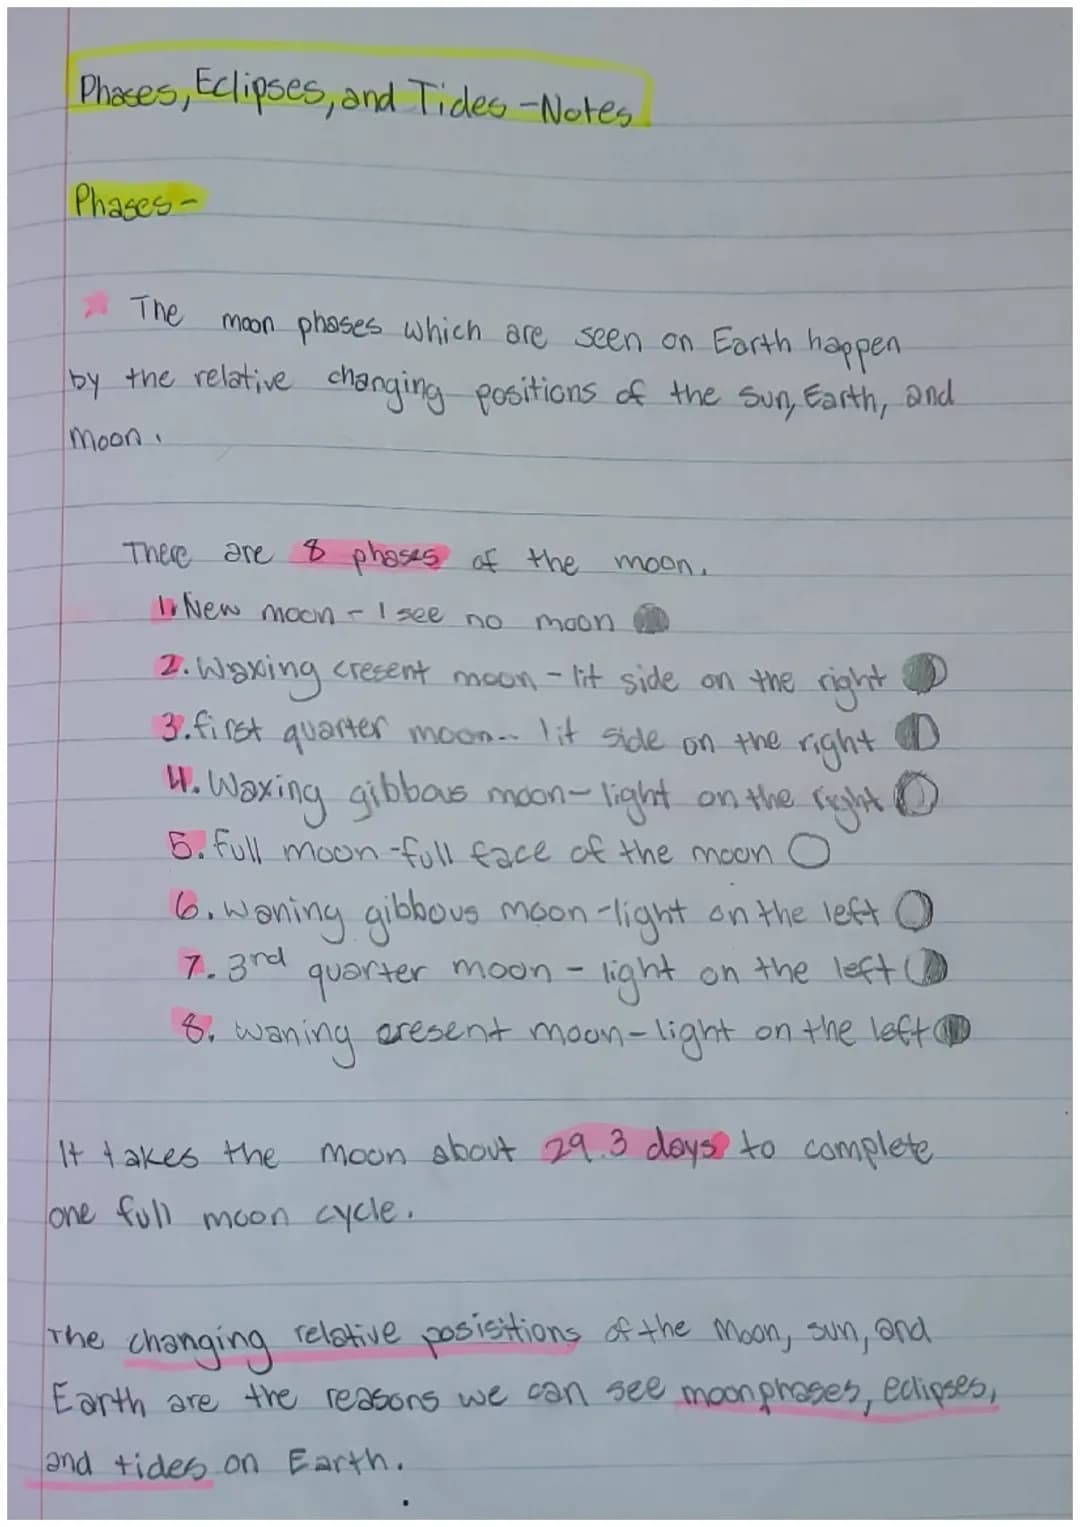 Phases, Eclipses, and Tides - Notes
Phases -
The moon phases which are seen on Earth happen
by the relative changing positions of the sun, Earth, and
moon.
There are 8 phases of the moon.
1. New moon - I see no moon
2. Waxing cresent moon - lit side on the right
3. first quarter moon - lit side on the right
4. Waxing gibbous moon - light on the right
5. full moon - full face of the moon
6. waning gibbous moon - light on the left
7. 3rd quarter moon - light on the left
8. waning cresent moon - light on the left
It takes the moon about 29.3 days to complete
one full moon cycle.
The changing relative posisitions of the Moon, sun, and
Earth are the reasons we can see moon phases, eclipses,
and tides on Earth.